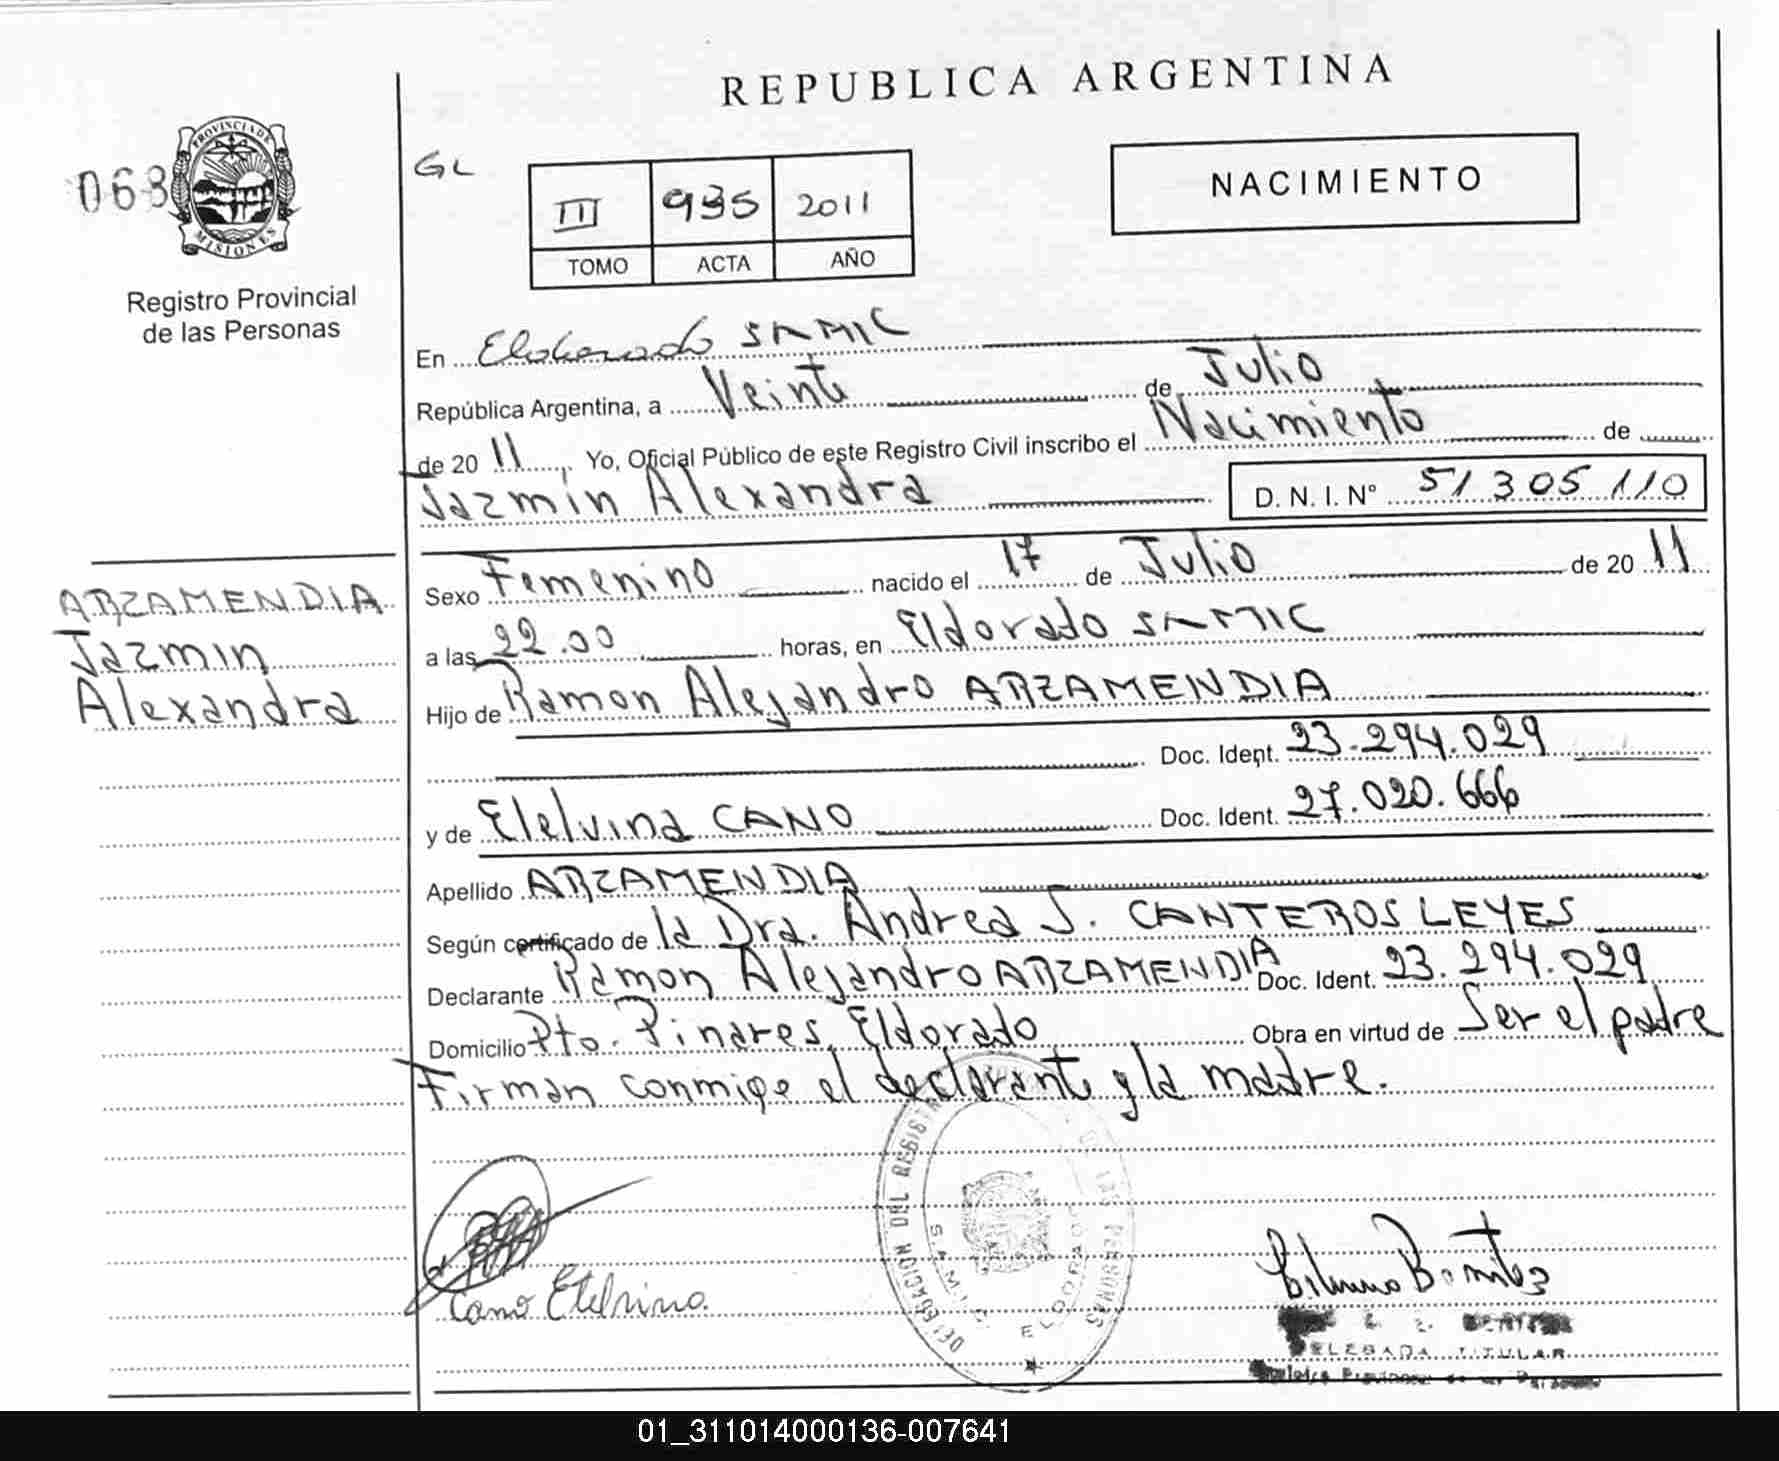 REPUBLICA ARGENTINA
068
PROVINCIA DE
MISIONES
Registro Provincial
de las Personas
GL
III 935 2011
TOMO ACTA AÑO
NACIMIENTO
En Eldorado SAMIC
República Argentina, a Veinte de Julio
de 20 11, Yo, Oficial Público de este Registro Civil inscribo el Nacimiento de
Jazmín Alexandra D. N. I. N° 51 305 110
Sexo Femenino nacido el 17 de Julio de 20 11
a las 22.00 horas, en Eldorado SAMIC
Hijo de Ramon Alejandro ARZAMENDIA
Doc. Ident. 23.294.029
y de Elelvina CANO Doc. Ident. 27.020.666
Apellido ARZAMENDIA
Según certificado de la Dra. Andrea J. CANTEROS LEYES
Declarante Ramon Alejandro ARZAMENDIA Doc. Ident. 23.294.029
Domicilio Pto. Pinares, Eldorado Obra en virtud de Ser el padre
Firman conmigo el declarante y la madre.
ARZAMENDIA
Jazmin
Alexandra
DELEGACION DEL REGISTRO DE LAS PERSONAS
S.A.M.I.C. ELDORADO
Cano Etelvina.
Benitez
DELEGADA TITULAR
01_311014000136-007641